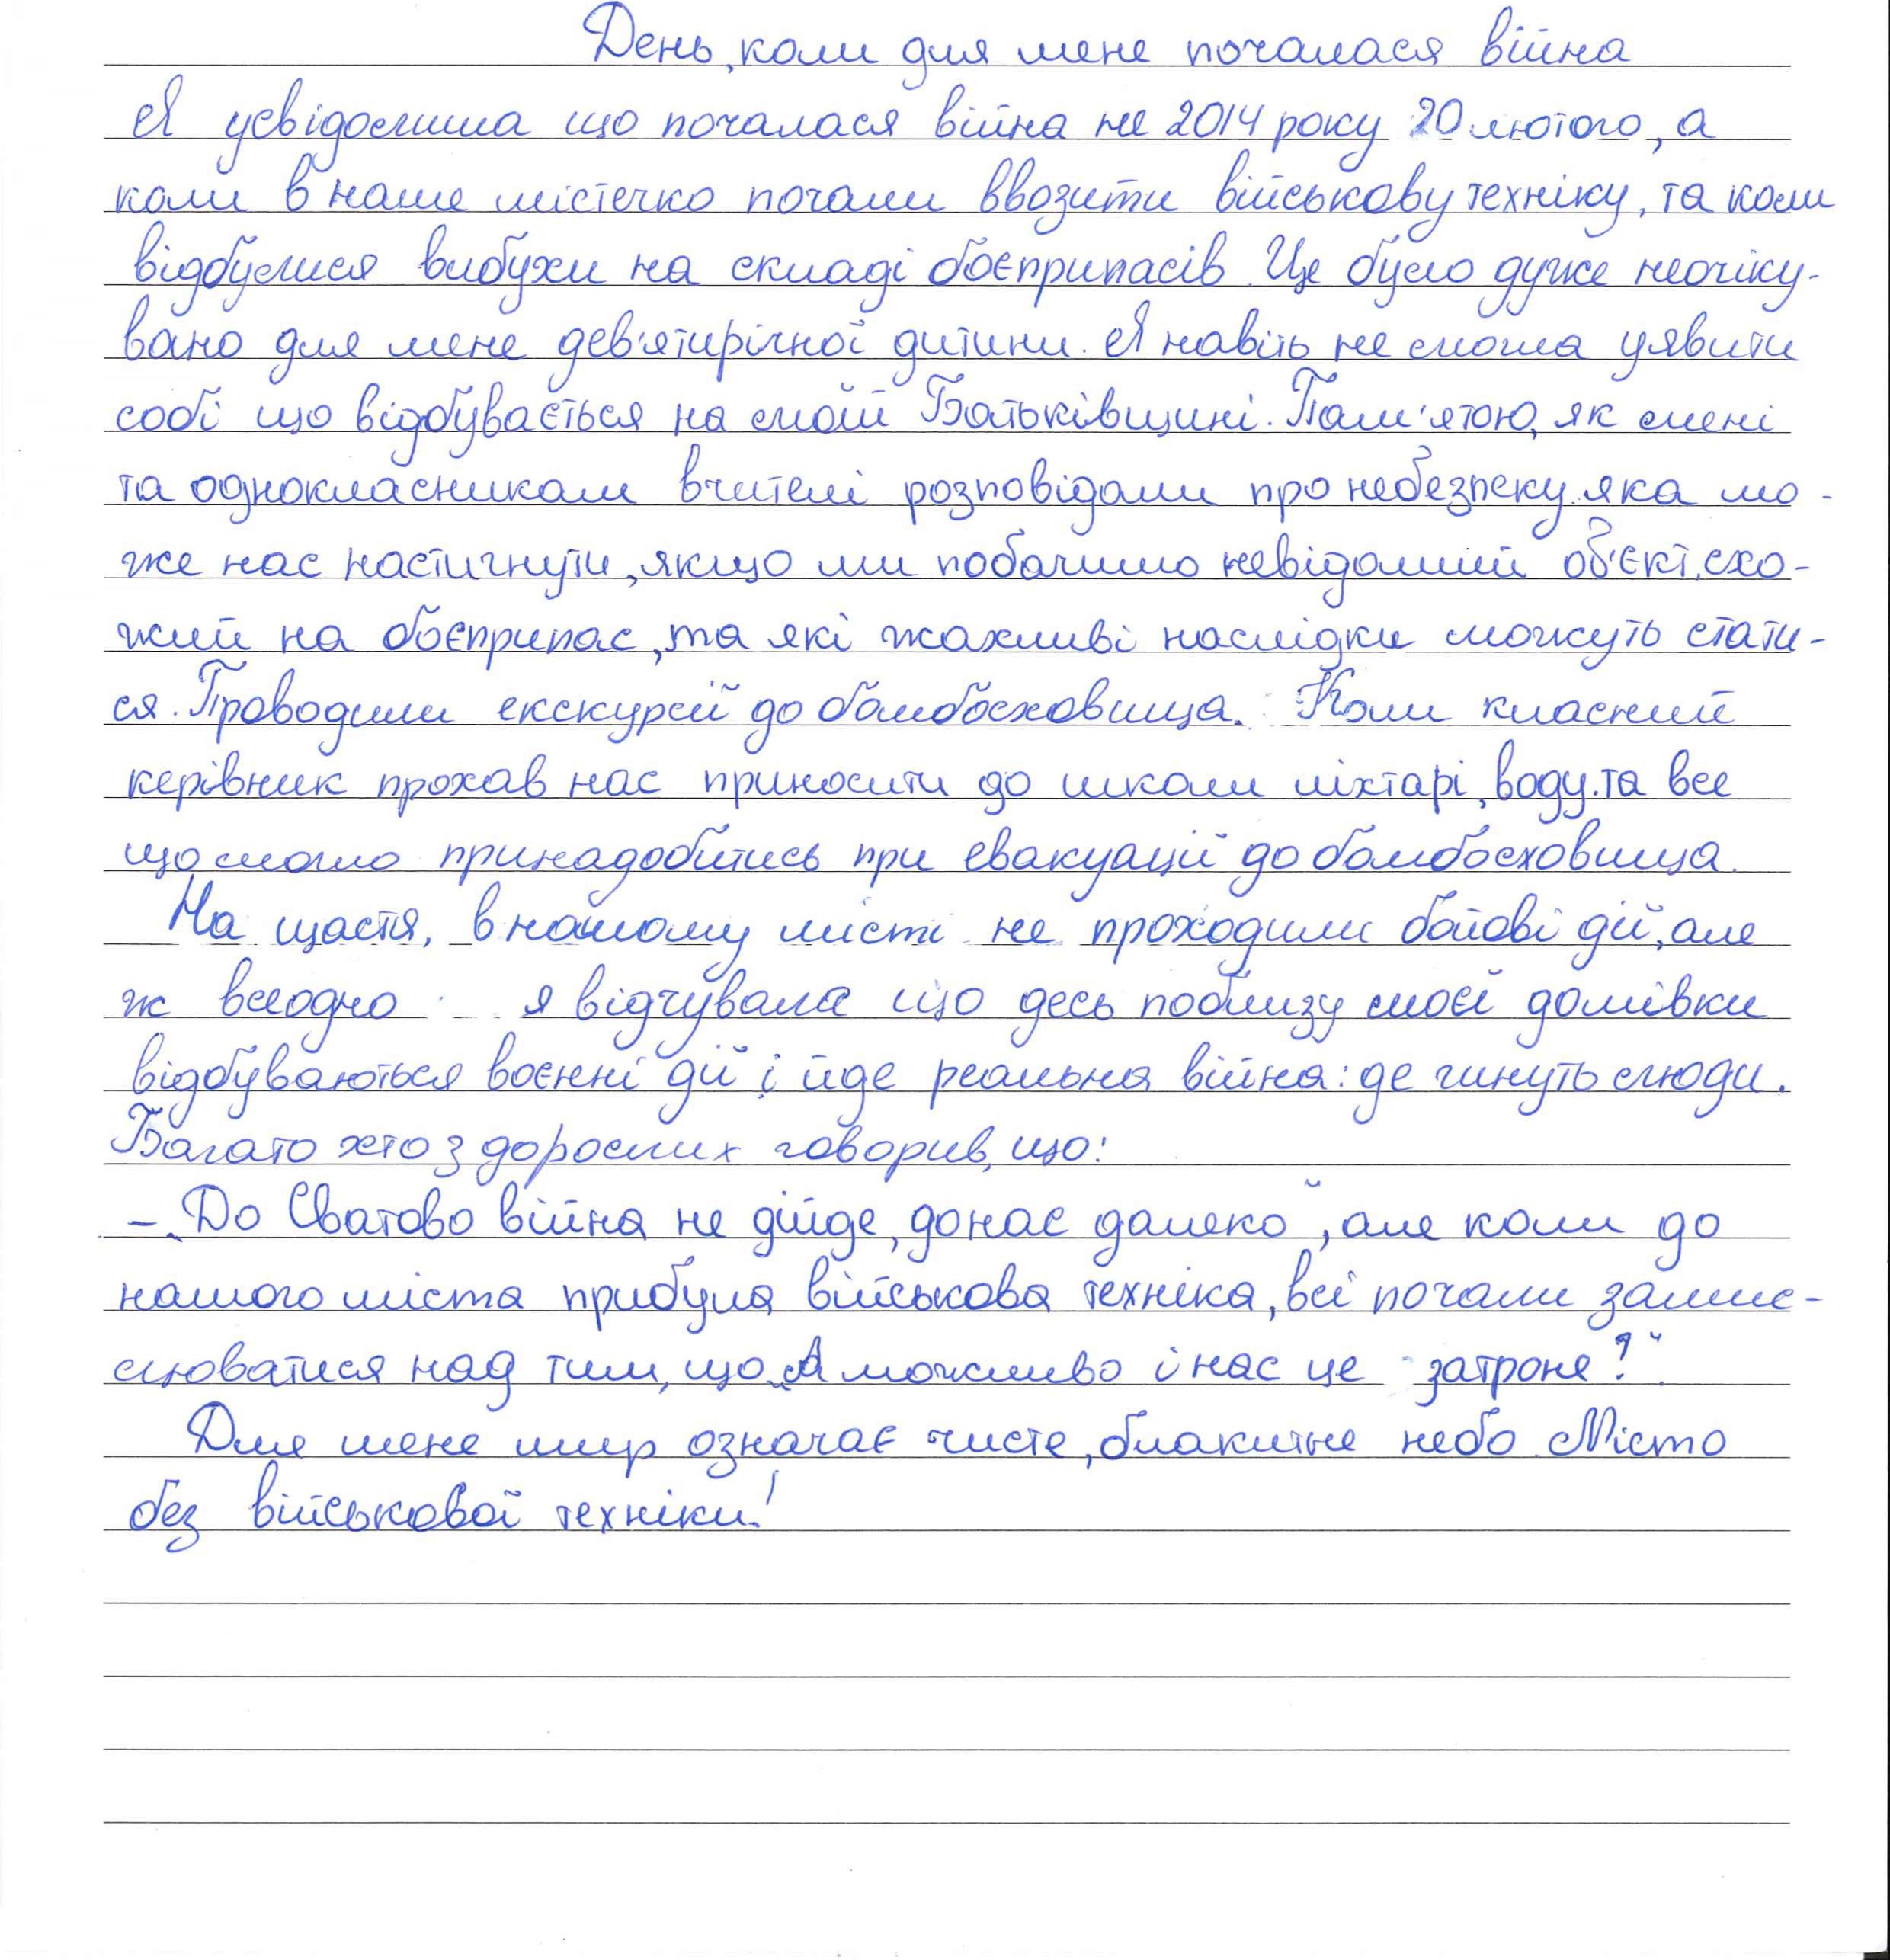 День, коли для мене почалася війна
Я усвідомила що почалася війна не 2014 року 20 лютого, а
коли в наше містечко почали ввозити військову техніку, та коли
відбулися вибухи на складі боєприпасів. Це було дуже неочіку-
вано для мене дев'ятирічної дитини. Я навіть не могла уявити
собі що відбувається на моїй Батьківщині. Пам'ятаю, як мені
та однокласникам вчителі розповідали про небезпеку яка мо-
же нас настигнути, якщо ми побачимо невідомий об'єкт, схо-
жий на боєприпас, та які жахливі наслідки можуть стати-
ся. Проводили екскурсії до бомбосховища. Коли класний
керівник прохав нас приносити до школи ліхтарі, воду та все
що могло принадобитись при евакуації до бомбосховища.
На щастя, в нашому місті не проходили бойові дії, але
ж всеодно я відчувала що десь поблизу моєї домівки
відбуваються воєнні дії і йде реальна війна: де гинуть люди.
Багато хто з дорослих говорив, що:
– „До Сватово війна не дійде, до нас далеко", але коли до
нашого міста прибула військова техніка, всі почали замис-
люватися над тим, що „А можливо і нас це затроне?".
Для мене мир означає чисте, блакитне небо. Місто
без військової техніки!